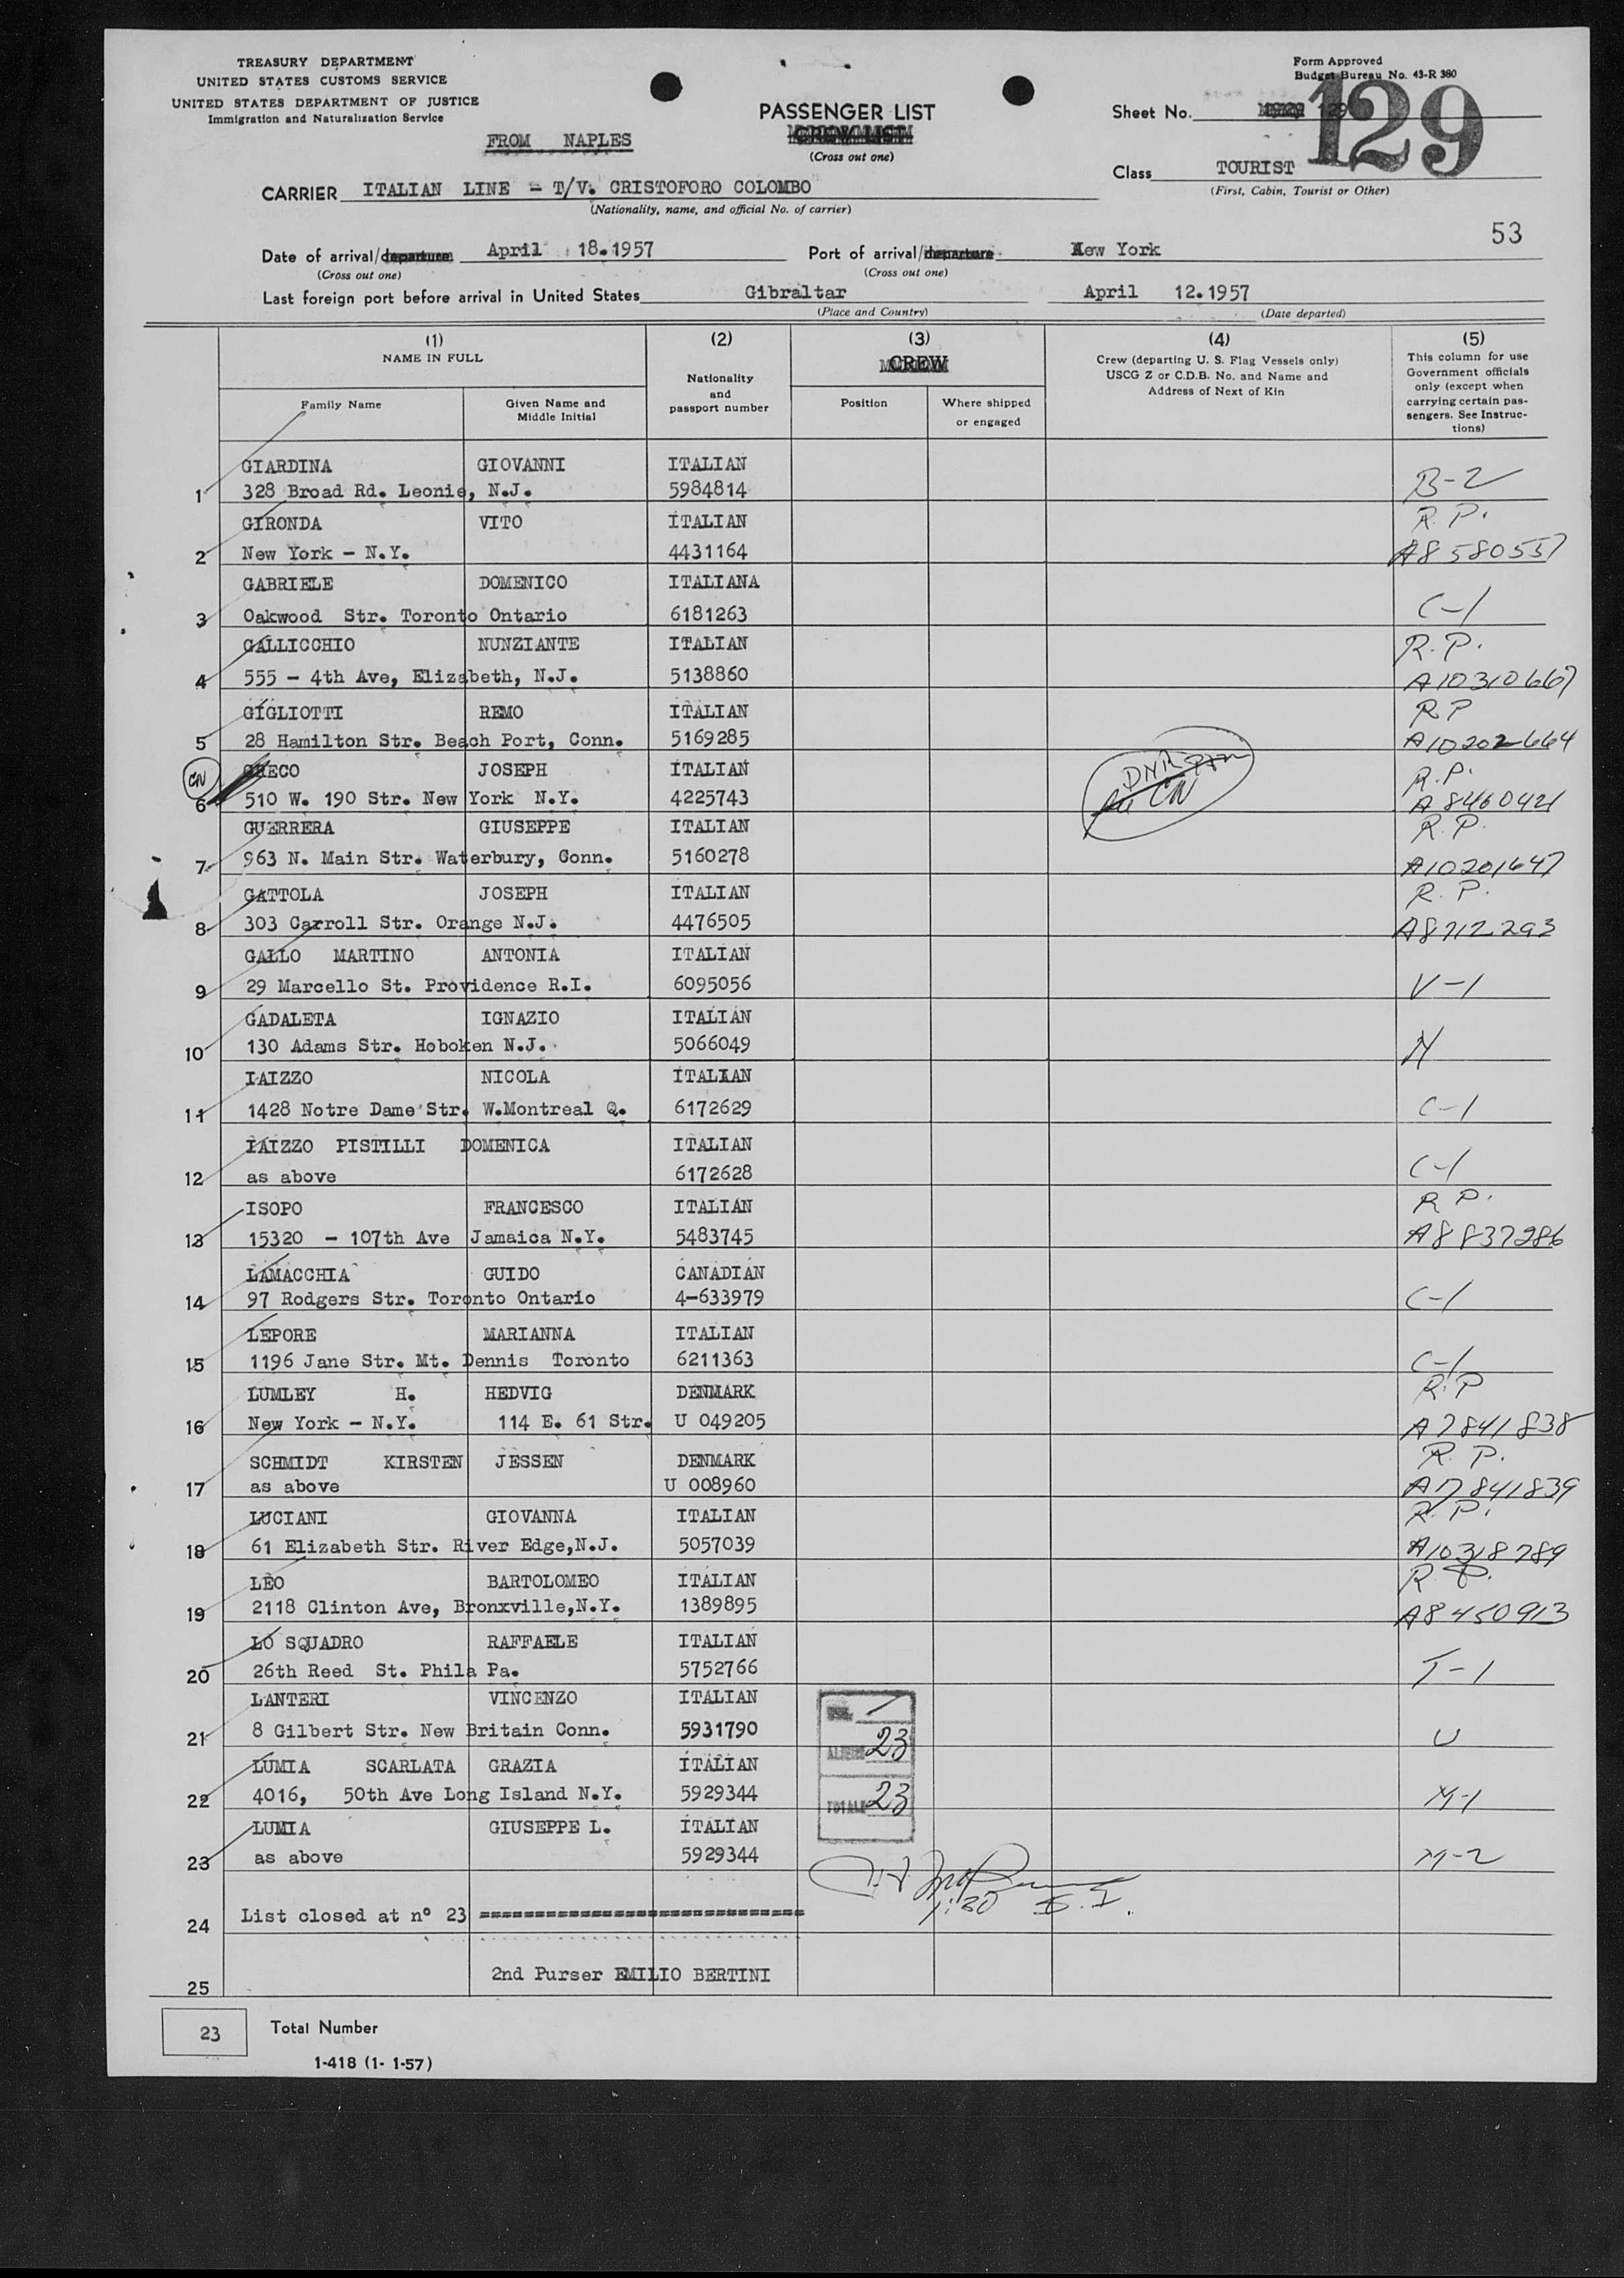 TREASURY DEPARTMENT
UNITED STATES CUSTOMS SERVICE
UNITED STATES DEPARTMENT OF JUSTICE
Immigration and Naturalization Service
FROM NAPLES
PASSENGER LIST
CREW LIST
(Cross out one)
Form Approved
Budget Bureau No. 43-R 380
Sheet No. 129
129
Class TOURIST
(First, Cabin, Tourist or Other)
CARRIER ITALIAN LINE - T/V. CRISTOFORO COLOMBO
(Nationality, name, and official No. of carrier)
53
Date of arrival/departure April 18.1957 Port of arrival/departure New York
(Cross out one) (Cross out one)
Last foreign port before arrival in United States Gibraltar April 12.1957
(Place and Country) (Date departed)
(1) NAME IN FULL
Family Name
Given Name and Middle Initial
(2) Nationality and passport number
(3) CREW
Position
Where shipped or engaged
(4) Crew (departing U. S. Flag Vessels only) USCG Z or C.D.B. No. and Name and Address of Next of Kin
(5) This column for use Government officials only (except when carrying certain passengers. See Instructions)
GIARDINA GIOVANNI ITALIAN
1 328 Broad Rd. Leonie, N.J. 5984814 B-2
GIRONDA VITO ITALIAN R.P.
2 New York - N.Y. 4431164 A8580557
GABRIELE DOMENICO ITALIANA
3 Oakwood Str. Toronto Ontario 6181263 C-1
GALLICCHIO NUNZIANTE ITALIAN R.P.
4 555 - 4th Ave, Elizabeth, N.J. 5138860 A10310667
GIGLIOTTI REMO ITALIAN RP
5 28 Hamilton Str. Beach Port, Conn. 5169285 A10202664
CN GRECO JOSEPH ITALIAN DNR R.P.
6 510 W. 190 Str. New York N.Y. 4225743 CN A8460421
GUERRERA GIUSEPPE ITALIAN R.P.
7 963 N. Main Str. Waterbury, Conn. 5160278 A10201647
GATTOLA JOSEPH ITALIAN R.P.
8 303 Carroll Str. Orange N.J. 4476505 A8712293
GALLO MARTINO ANTONIA ITALIAN
9 29 Marcello St. Providence R.I. 6095056 V-1
GADALETA IGNAZIO ITALIAN
10 130 Adams Str. Hoboken N.J. 5066049 N
IAIZZO NICOLA ITALIAN
11 1428 Notre Dame Str. W.Montreal Q. 6172629 C-1
IAIZZO PISTILLI DOMENICA ITALIAN
12 as above 6172628 C-1
ISOPO FRANCESCO ITALIAN R.P.
13 15320 - 107th Ave Jamaica N.Y. 5483745 A8837286
LAMACCHIA GUIDO CANADIAN
14 97 Rodgers Str. Toronto Ontario 4-633979 C-1
LEPORE MARIANNA ITALIAN
15 1196 Jane Str. Mt. Dennis Toronto 6211363 C-1
LUMLEY H. HEDVIG DENMARK R.P
16 New York - N.Y. 114 E. 61 Str. U 049205 A7841838
SCHMIDT KIRSTEN JESSEN DENMARK R.P.
17 as above U 008960 A7841839
LUCIANI GIOVANNA ITALIAN R.P.
18 61 Elizabeth Str. River Edge,N.J. 5057039 A10318789
LEO BARTOLOMEO ITALIAN R.P.
19 2118 Clinton Ave, Bronxville,N.Y. 1389895 A8450913
LO SQUADRO RAFFAELE ITALIAN
20 26th Reed St. Phila Pa. 5752766 T-1
LANTERI VINCENZO ITALIAN
21 8 Gilbert Str. New Britain Conn. 5931790 ALIENS 23 U
LUMIA SCARLATA GRAZIA ITALIAN
22 4016, 50th Ave Long Island N.Y. 5929344 TOTAL 23 M-1
LUMIA GIUSEPPE L. ITALIAN
23 as above 5929344 M-2
1:30
24 List closed at n° 23 ==============================
2nd Purser EMILIO BERTINI
25
23 Total Number
1-418 (1- 1-57)